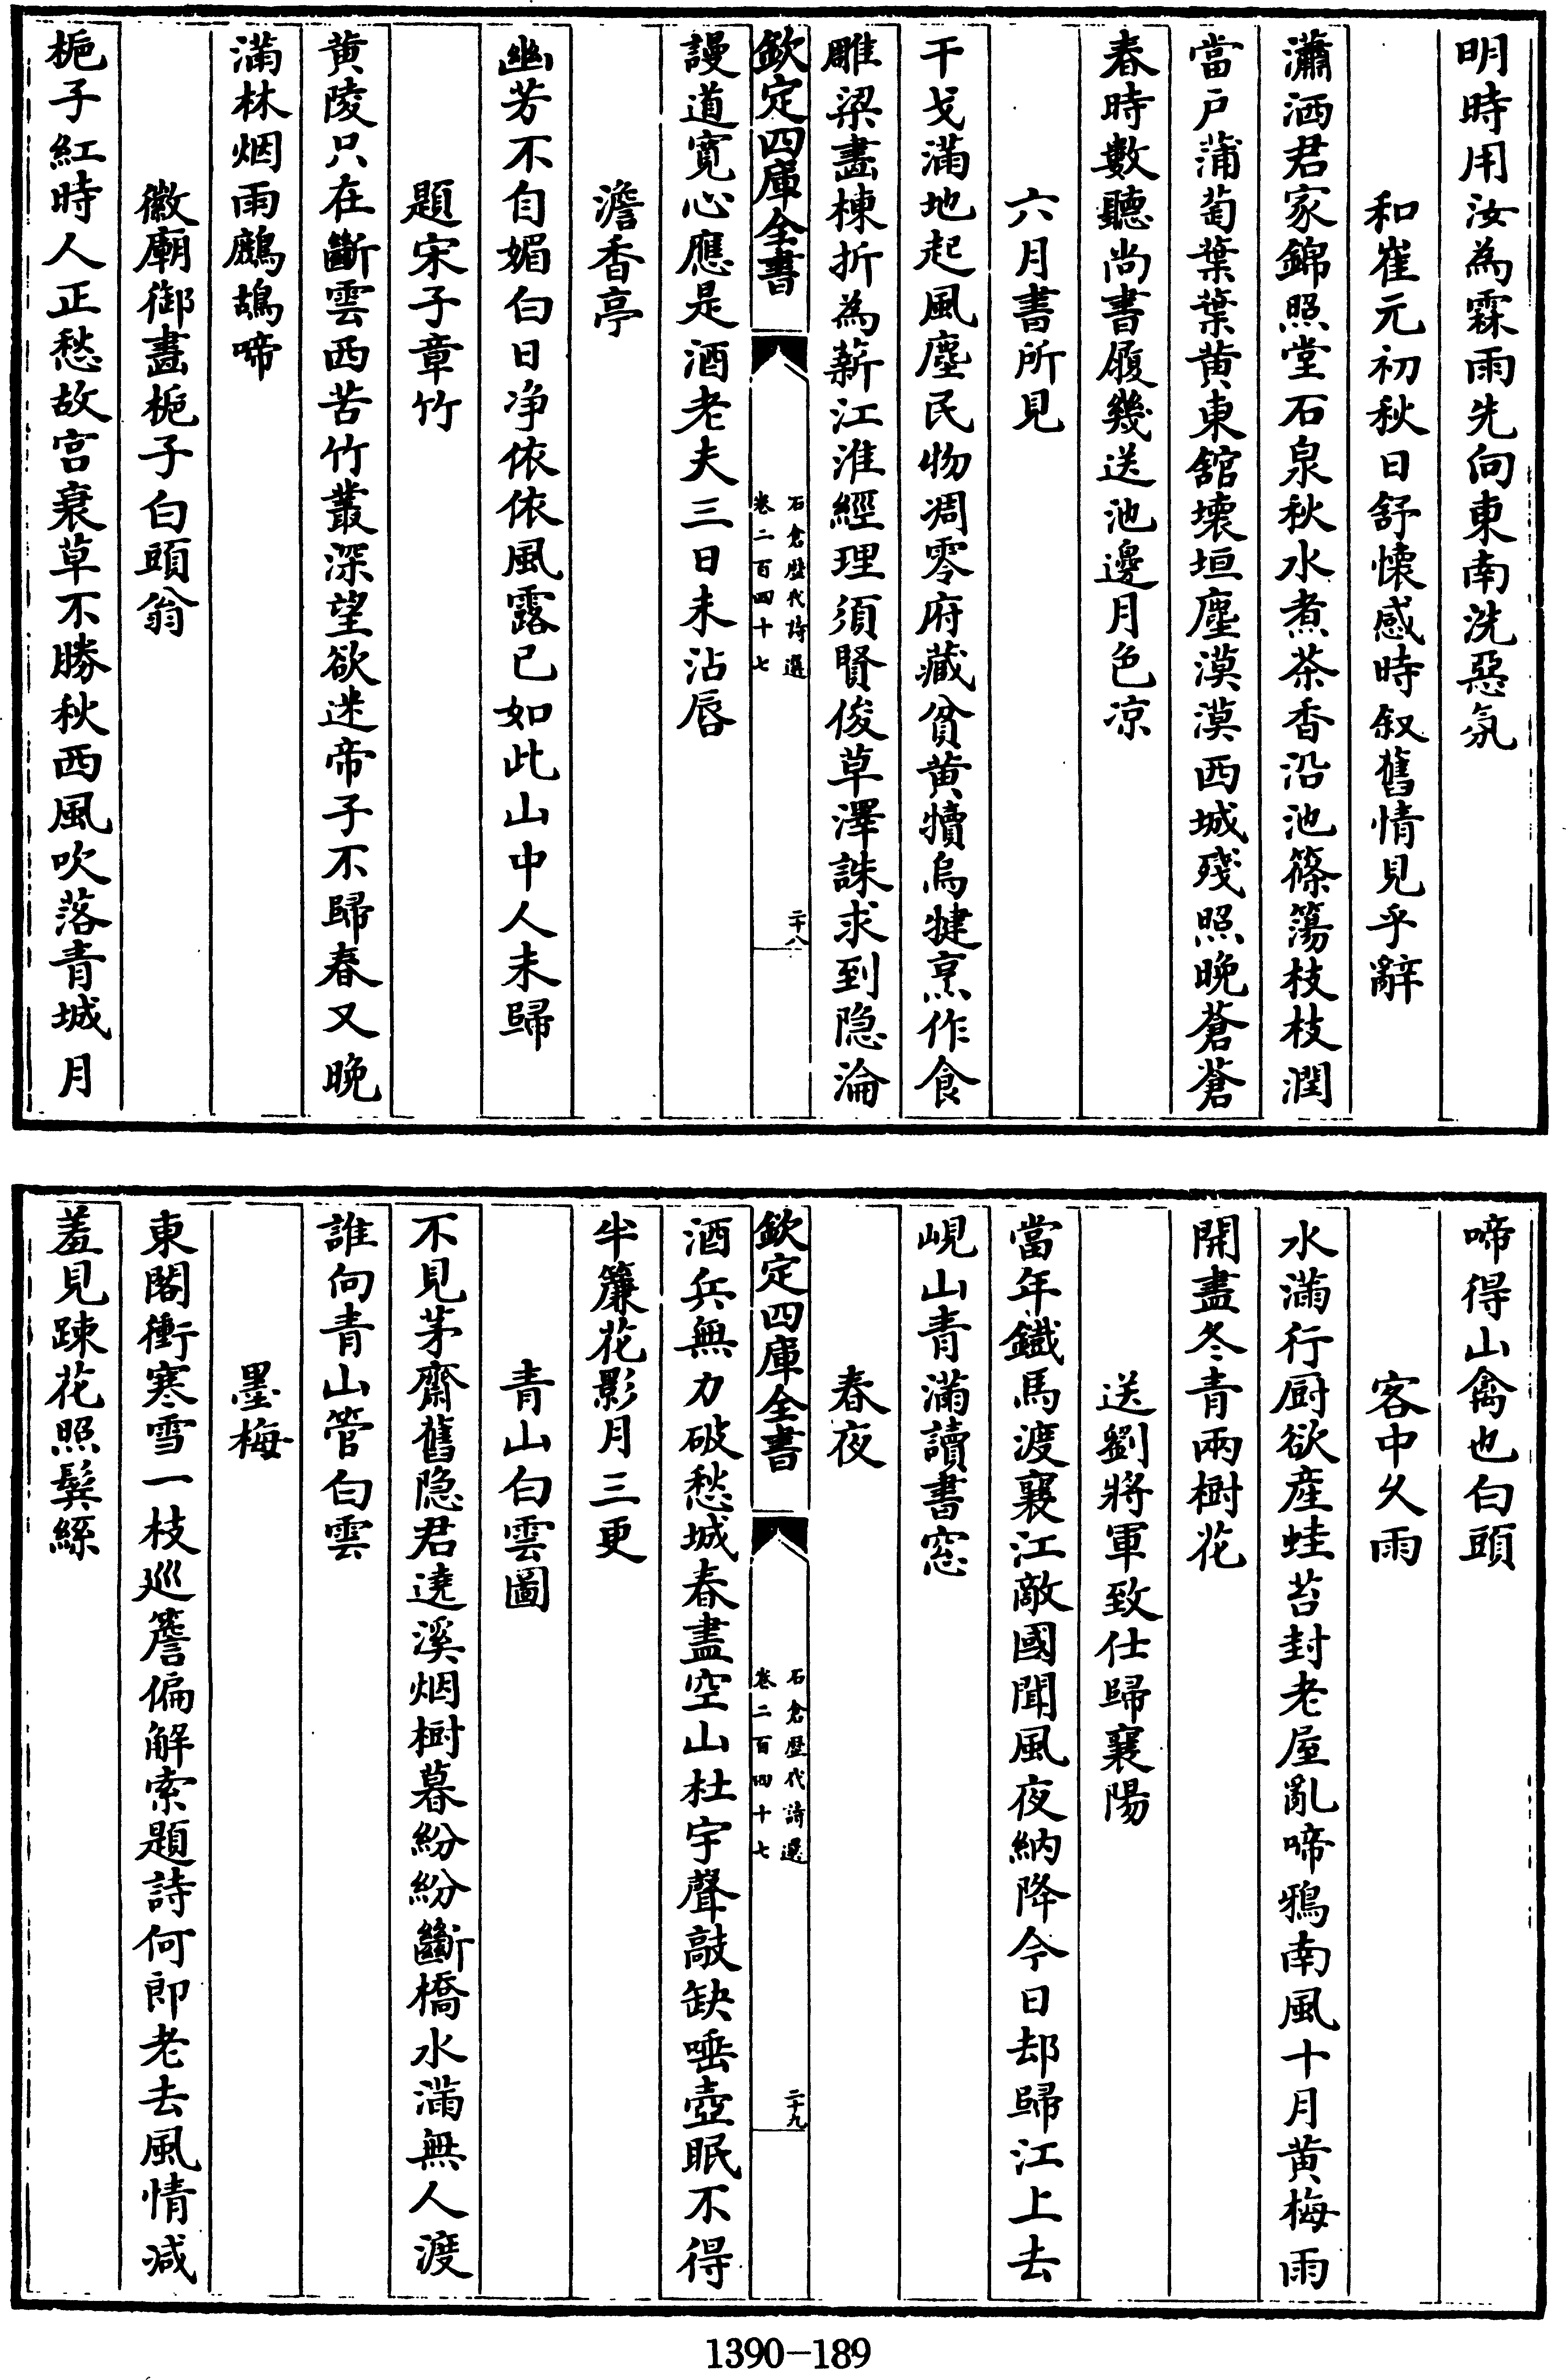 明時用汝為霖雨先向東南洗惡氛
和崔元初秋日舒懷感時叙舊情見乎辭
瀟洒君家錦照堂石泉秋水煮茶香沿池篠簜枝枝潤
當戸蒲萄葉葉黄東舘壊垣塵漠漠西城殘照晚蒼蒼
春時數聽尚書履幾送池邊月色凉
六月書所見
干戈滿地起風塵民物凋零府藏貧黄犢烏犍烹作食
雕梁畫棟折為薪江淮經理須賢俊草澤誅求到隐淪
欽定四庫全書
石倉歴代詩選
卷二百四十七
二十八
謾道寛心應是酒老夫三日未沾唇
澹香亭
幽芳不自媚白日净依依風露已如此山中人未歸
題宋子章竹
黄陵只在斷雲西苦竹叢深望欲迷帝子不歸春又晚
滿林烟雨鷓鴣啼
徽廟御畫梔子白頭翁
梔子紅時人正愁故宫衰草不勝秋西風吹落青城月
啼得山禽也白頭
客中久雨
水滿行厨欲産蛙苔封老屋亂啼鴉南風十月黄梅雨
開盡冬青兩樹花
送劉將軍致仕歸襄陽
當年鐡馬渡襄江敵國聞風夜納降今日却歸江上去
峴山青滿讀書窓
春夜
欽定四庫全書
石倉歴代詩選
卷二百四十七
二十九
酒兵無力破愁城春盡空山杜宇聲敲缺唾壺眠不得
半簾花影月三更
青山白雲圖
不見茅齋舊隐君遶溪烟樹暮紛紛斷橋水滿無人渡
誰向青山管白雲
墨梅
東閣衝寒雪一枝廵簷偏解索題詩何郎老去風情减
羞見踈花照鬓絲
1390-189